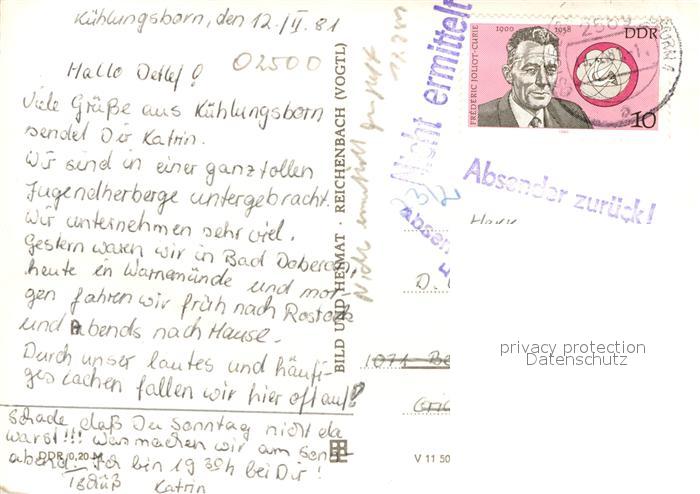 Kühlungsborn, den 12./II. 81
Hallo Detlef!
02500
Viele Grüße aus Kühlungsborn
sendet Dir Katrin.
Wir sind in einer ganz tollen
Jugendherberge untergebracht.
Wir unternehmen sehr viel.
Gestern waren wir in Bad Doberan,
heute in Warnemünde und mor-
gen fahren wir früh nach Rostock
und abends nach Hause.
Durch unser lautes und häufi-
ges Lachen fallen wir hier oft auf!
Schade, daß Du Sonntag nicht da
warst!!! Was machen wir am Sonn-
abend. Ich bin 19 30h bei Dir!
Tschüß Katrin
DDR 0,20 M
BILD UND HEIMAT · REICHENBACH (VOGTL)
Nicht ermittelt
Nicht ermittelt
23/2
Absender zurück!
FRÉDÉRIC JOLIOT-CURIE
1900 1958
DDR
10
2565
Herr
D.
1071 Be
V 11 50
privacy protection
Datenschutz